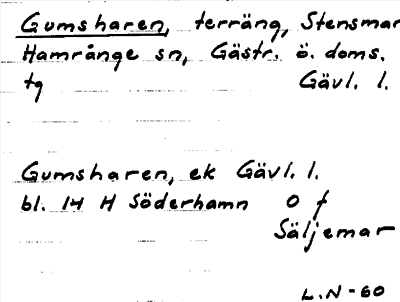 Gumsharen, terräng, Stensmar
Hamrånge sn, Gästr. ö. doms.
tg Gävl. l.
Gumsharen, ek Gävl. l.
bl. 14 H Söderhamn O f
Säljemar
L.N-60